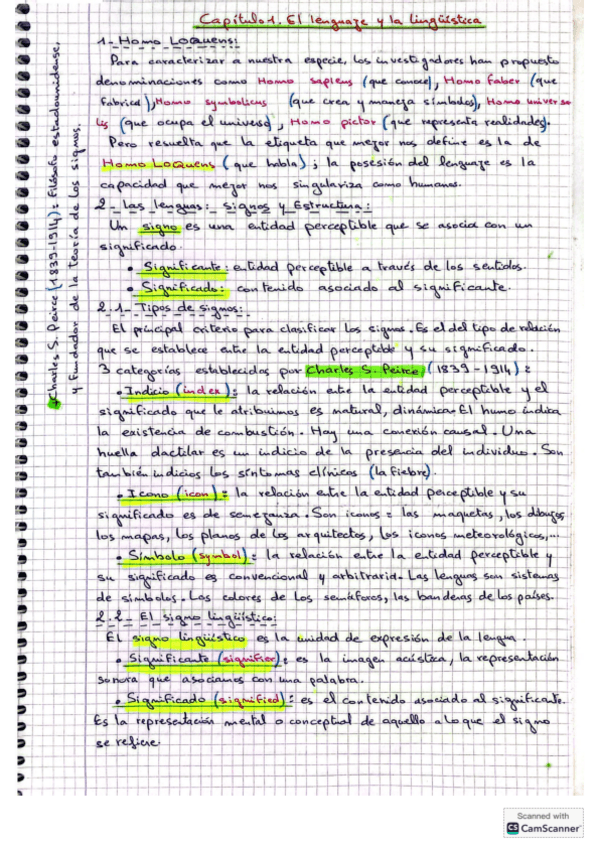 Capítulo 1. El lenguaje y la lingüística
1- Homo Loquens:
Para caracterizar a nuestra especie, los investigadores han propuesto
denominaciones como Homo sapiens (que conoce), Homo faber (que
fabrica), Homo symbolicus (que crea y maneja símbolos), Homo universa
lis (que ocupa el universo), Homo pictor (que representa realidades).
Pero resuelta que la etiqueta que mejor nos define es la de
Homo LoQuens (que habla); la posesión del lenguaje es la
capacidad que mejor nos singulariza como humanos.
2- Las lenguas: signos y Estructura:
Un signo es una entidad perceptible que se asocia con un
significado.
• Significante: entidad perceptible a través de los sentidos.
• Significado: contenido asociado al significante.
2.1- Tipos de signos:
El principal criterio para clasificar los signos. Es el del tipo de relación
que se establece entre la entidad perceptible y su significado.
3 categorías establecidos por Charles S. Peirce (1839-1914):
• Indicio (index): la relación entre la entidad perceptible y el
significado que le atribuimos es natural, dinámica. El humo indica
la existencia de combustión. Hay una conexión causal. Una
huella dactilar es un indicio de la presencia del individuo. Son
también indicios los síntomas clínicos (la fiebre).
• Icono (icon): la relación entre la entidad perceptible y su
significado es de semejanza. Son iconos: las maquetas, los dibujos,
los mapas, los planos de los arquitectos, los iconos meteorológicos,...
• Símbolo (symbol): la relación entre la entidad perceptible y
su significado es convencional y arbitraria. Las lenguas son sistemas
de símbolos. Los colores de los semáforos, las banderas de los países.
2.2- El signo lingüístico:
El signo lingüístico es la unidad de expresión de la lengua.
• Significante (signifier): es la imagen acústica, la representación
sonora que asociamos con una palabra.
• Significado (signified): es el contenido asociado al significante.
Es la representación mental o conceptual de aquello a lo que el signo
se refiere.
Charles S. Peirce (1839-1914): Filósofo estadounidense,
y fundador de la teoría de los signos.
Scanned with
CS CamScanner